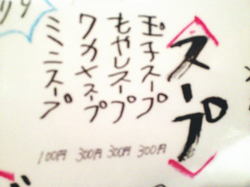 スープ
玉子スープ 300円
もやしスープ 300円
ワカメスープ 300円
ミニスープ 100円